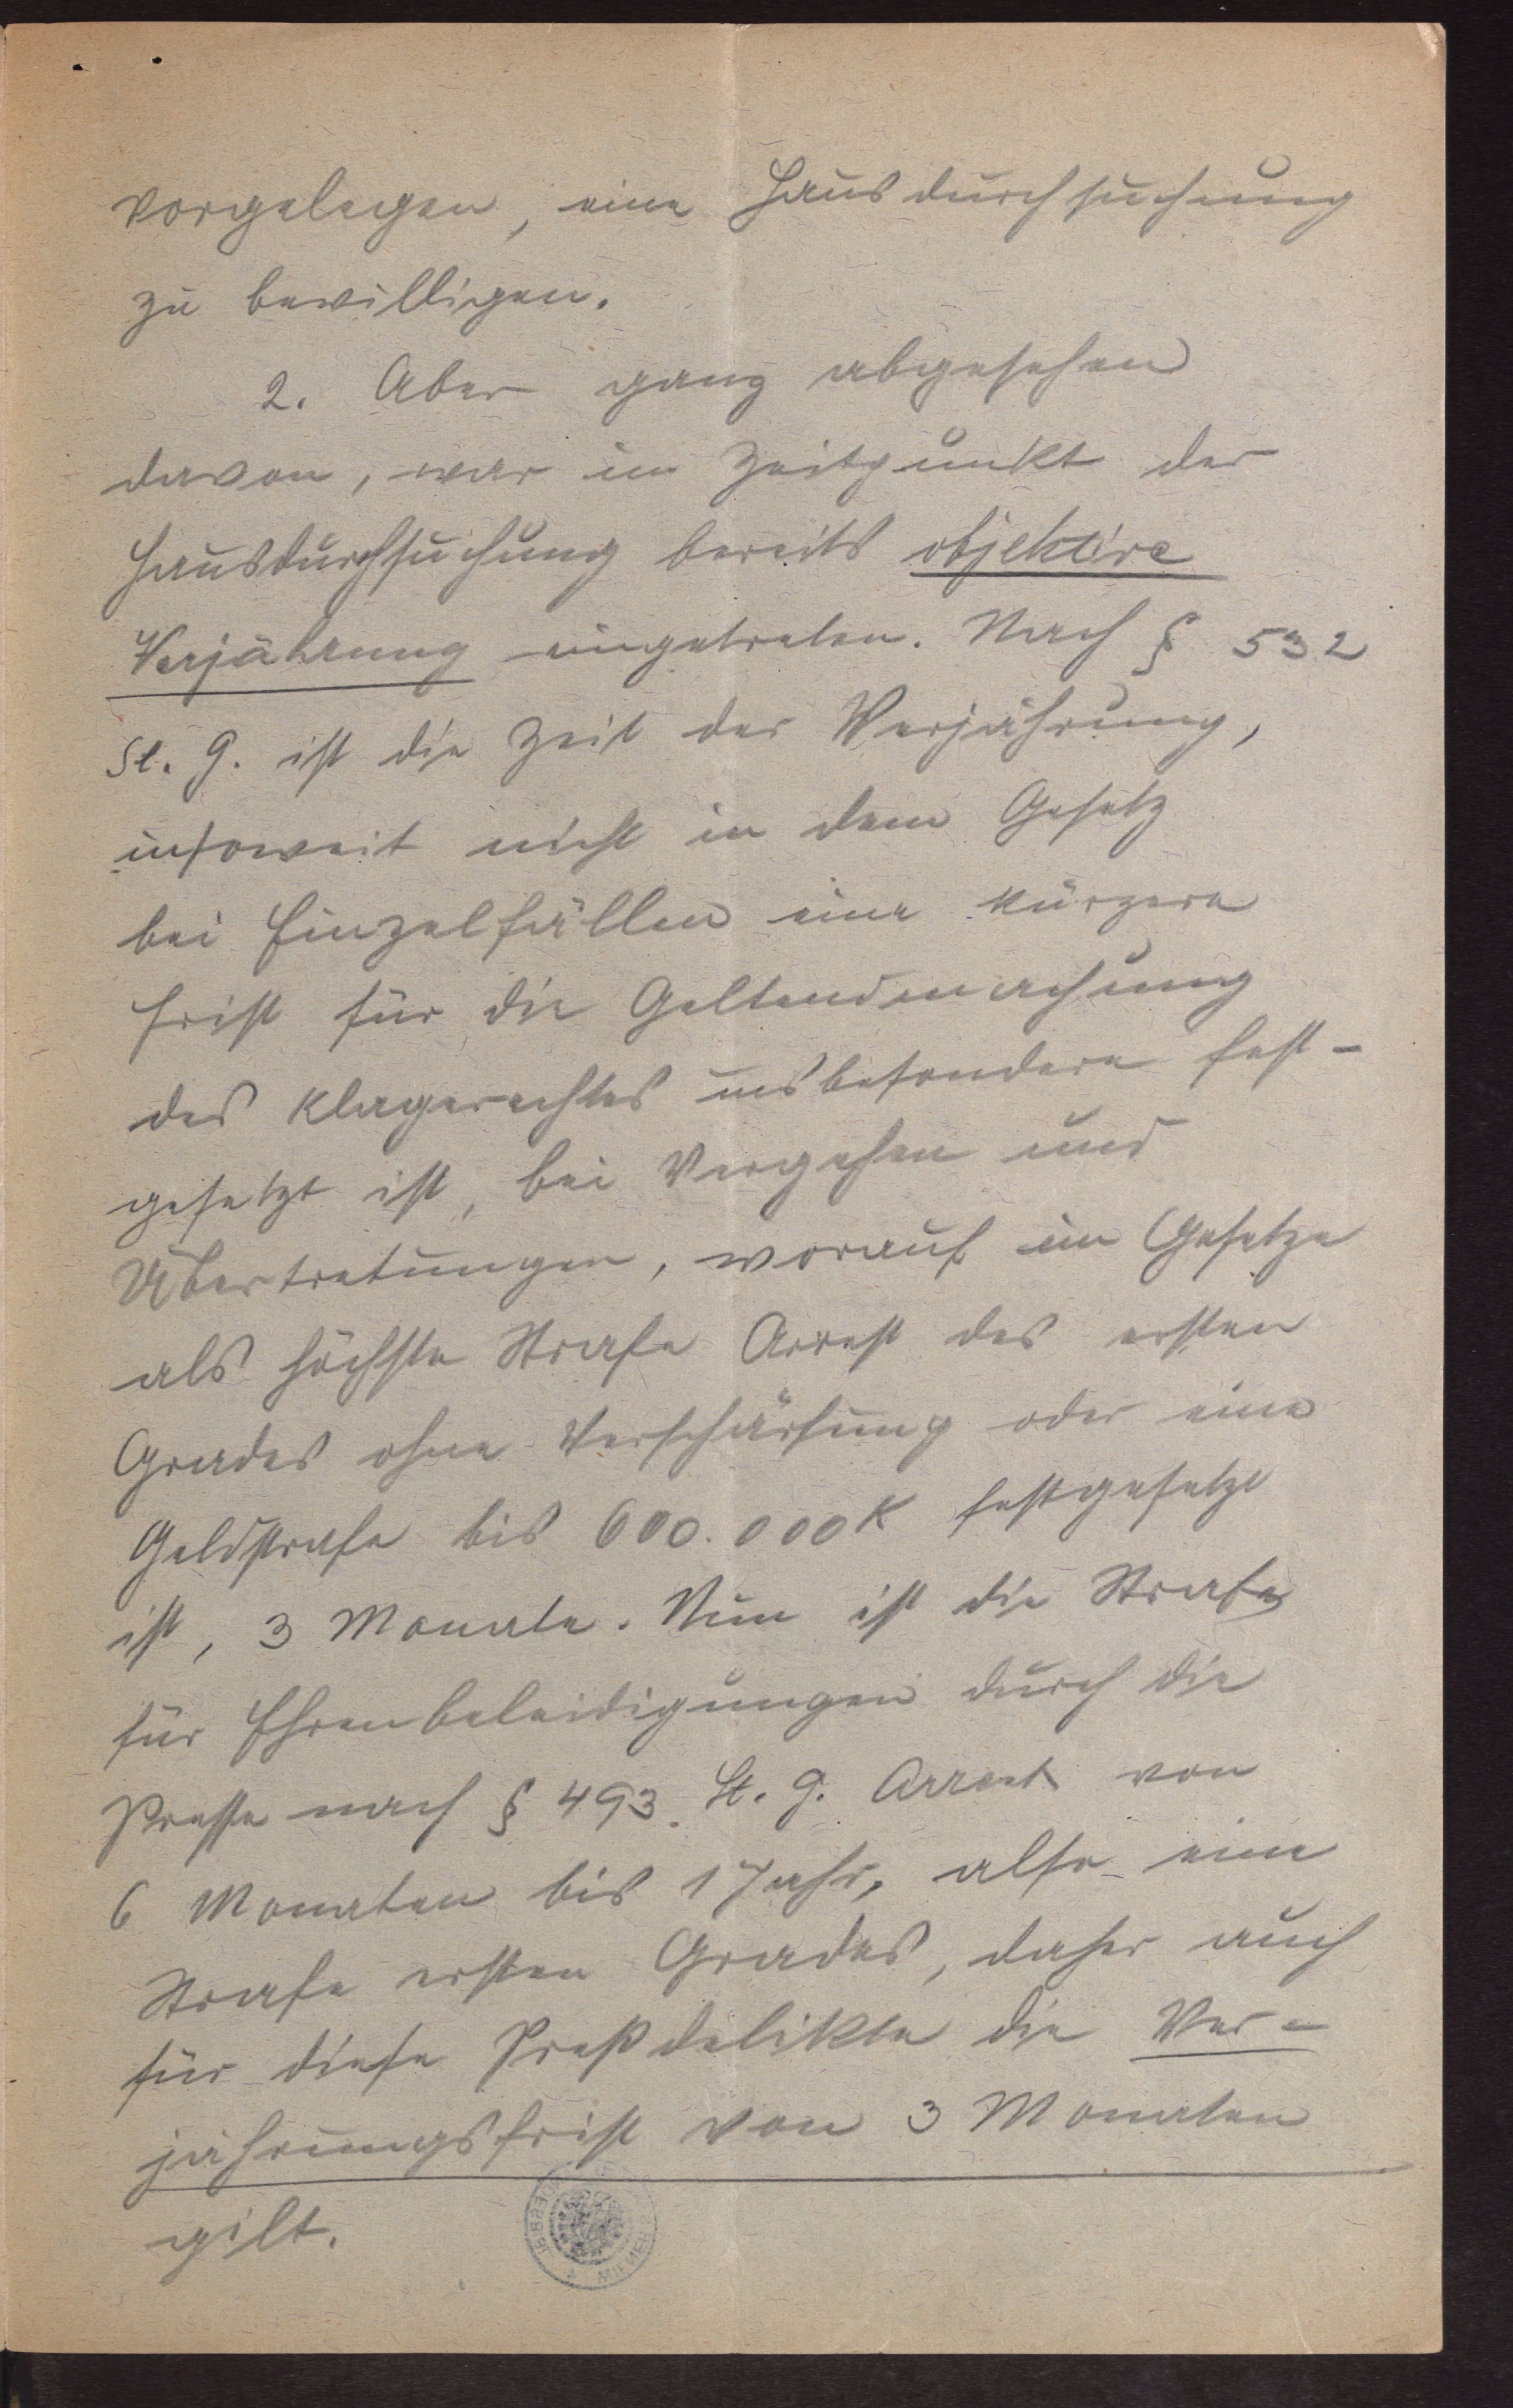 vorgelegen, eine Hausdurchsuchung
zu bewilligen.
2. Aber ganz abgesehen
davon, war im Zeitpunkt der
Hausdurchsuchung bereits objektive
Verjährung eingetreten. Nach § 532
St. G. ist die Zeit der Verjährung,
insoweit nicht in dem Gesetz
bei Einzelfällen eine kürzere
Frist für die Geltendmachung
des Klagerechtes insbesondere fest-
gesetzt ist, bei Vergehen und
Übertretungen, worauf im Gesetze
als höchste Strafe Arrest des ersten
Grades ohne Verschärfung oder eine
Geldstrafe bis 600.000 K festgesetzt
ist, 3 Monate. Nun ist die Strafe
für Ehrenbeleidigungen durch die
Presse nach § 493. St. G. Arrest von
6 Monaten bis 1 Jahr, also eine
Strafe ersten Grades, daher auch
für diese Preßdelikte die Ver-
jährungsfrist von 3 Monaten
gilt.